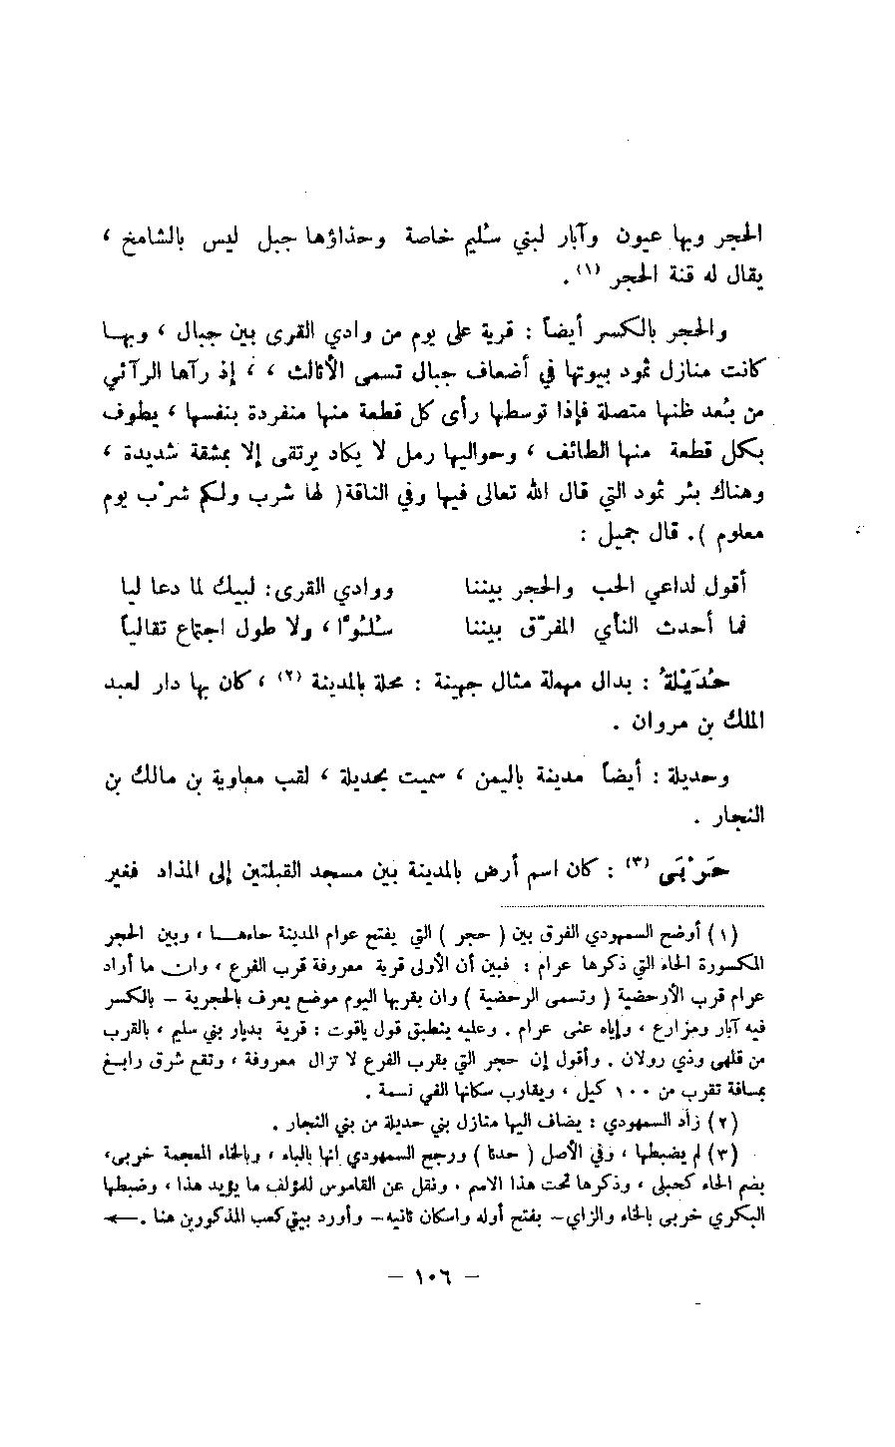 الحجر وبها عيون وآبار لبني سُليم خاصة وحذاؤها جبل ليس بالشامخ ،
يقال له قنة الحجر (١) .
والحجر بالكسر أيضاً : قرية على يوم من وادي القرى بين جبال ، وبهـا
كانت منازل ثمود بيوتها في أضعاف جبال تسمى الأثالث ، ، إذ رآها الرآئي
من بُعد ظنها متصلة فإذا توسطها رأى كل قطعة منها منفردة بنفسها ، يطوف
بكل قطعة منها الطائف ، وحواليها رمل لا يكاد يرتقى إلا بمشقة شديدة ،
وهناك بئر ثمود التي قال الله تعالى فيها وفي الناقة( لها شرب ولكم شرْب يوم
معلوم ). قال جميل :
أقول لداعي الحب والحجر بيننا ووادي القرى: لبيك لما دعا ليا
فما أحدث النأي المفرّق بيننا سُلُوّا ، ولا طول اجتماع تقالياً
حُدَيْلَةُ : بدال مهملة مثال جهينة : محلة بالمدينة (٢) ، كان بها دار لعبد
الملك بن مروان .
وحديلة : أيضاً مدينة باليمن ، سميت بحديلة ، لقب معاوية بن مالك بن
النجار .
حَرْبَى (٣) : كان اسم أرض بالمدينة بين مسجد القبلتين إلى المذاد فغير
(١) أوضح السمهودي الفرق بين ( حجر ) التي يفتح عوام المدينة حاءهـا ، وبين الحجر
المكسورة الحاء التي ذكرها عرام : فبين أن الأولى قرية معروفة قرب الفرع ، وان ما أراد
عرام قرب الأرحضية ( وتسمى الرحضية ) وان بقربها اليوم موضع يعرف بالحجرية – بالكسر
فيه آبار ومزارع ، وإياه عنى عرام . وعليه ينطبق قول ياقوت : قرية بديار بني سليم ، بالقرب
من قلهى وذي رولان . وأقول إن حجر التي بقرب الفرع لا تزال معروفة ، وتقع شرق رابغ
بمسافة تقرب من ١٠٠ كيل ، ويقارب سكانها الفي نسمة .
(٢) زاد السمهودي : يضاف اليها منازل بني حديلة من بني النجار .
(٣) لم يضبطها ، وفي الأصل ( حدثا ) ورجح السمهودي انها بالباء ، وبالخاء المعجمة خربى،
بضم الخاء كحبلى ، وذكرها تحت هذا الاسم . ونقل عن القاموس للمؤلف ما يؤيد هذا ، وضبطها
البكري خزبى بالخاء والزاي– بفتح أوله واسكان ثانيه– وأورد بيتي كعب المذكورين هنا . ←
– ١٠٦ –